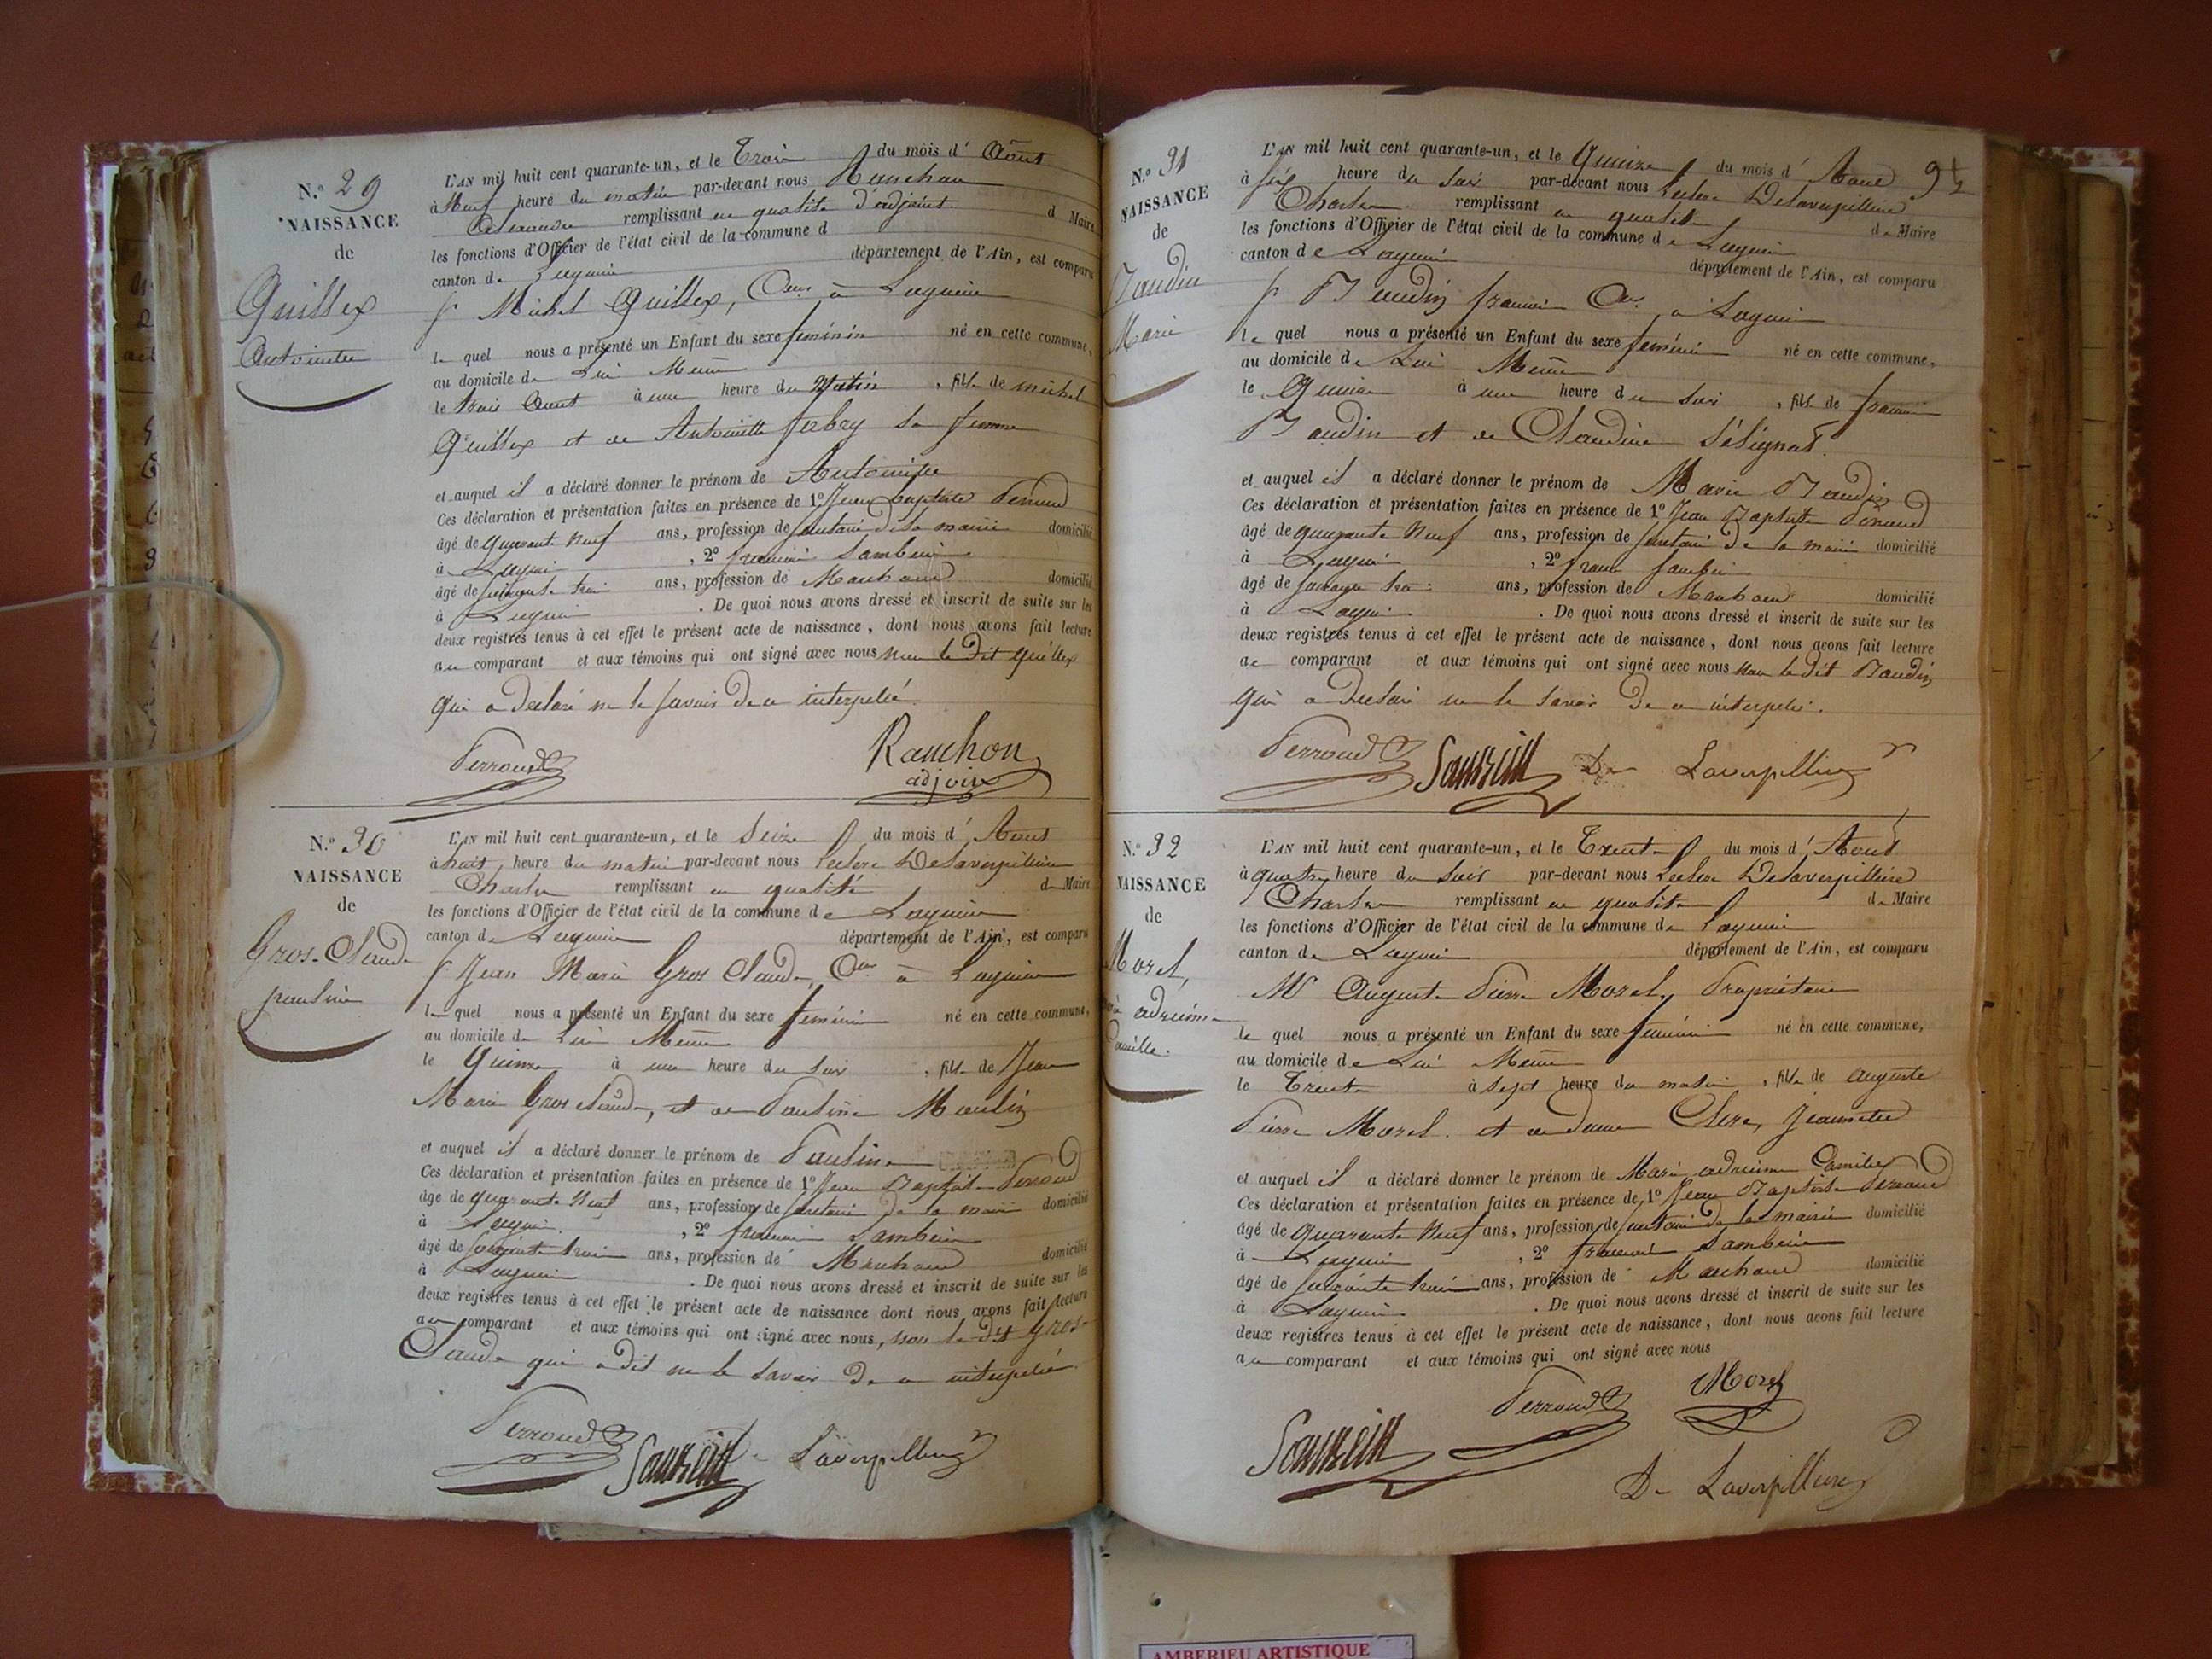 N.º 29
NAISSANCE
de
Quillex
Antoinette
L'AN mil huit cent quarante-un, et le Trois du mois d' Août
à Neuf heure du matin par-devant nous Ranchon
remplissant en qualité d'adjoint d Maire
les fonctions d'Officier de l'état civil de la commune d
canton de Lagnieu département de l'Ain, est comparu
Michel Quillex, à Lagnieu
le quel nous a présenté un Enfant du sexe féminin né en cette commune,
au domicile de Lui Même
le trois Aout à une heure du Matin, fille de michel
Quillex et de Antoinette ferbry sa femme
et auquel il a déclaré donner le prénom de Antoinette
Ces déclaration et présentation faites en présence de 1º Jean baptiste Perroud
âgé de quarante Neuf ans, profession de de la mairie domicilié
à Lagnieu, 2º
âgé de soixante trois ans, profession de Marchand domicilié
à Lagnieu. De quoi nous avons dressé et inscrit de suite sur les
deux registres tenus à cet effet le présent acte de naissance, dont nous avons fait lecture
au comparant et aux témoins qui ont signé avec nous non le dit Quillex
qui a déclaré ne le savoir de ce interpellé.
Perroud
Ranchon
adjoint
N.º 30
NAISSANCE
de
Gros-Claude
pauline
L'AN mil huit cent quarante-un, et le Seize du mois d' Aout
à huit heure du matin par-devant nous Leclerc Delaverpilliere
Charles remplissant en qualité de Maire
les fonctions d'Officier de l'état civil de la commune de Lagnieu
canton de Lagnieu département de l'Ain, est comparu
Jean Marie Gros Claude, à Lagnieu
le quel nous a présenté un Enfant du sexe féminin né en cette commune,
au domicile de Lui Même
le Quinze à une heure du soir, fille de Jean
Marie Gros Claude, et de Pauline Moulin
et auquel il a déclaré donner le prénom de Pauline
Ces déclaration et présentation faites en présence de 1º Jean Baptiste Perroud
âgé de quarante Neuf ans, profession de de la mairie domicilié
à Lagnieu, 2º
âgé de soixante trois ans, profession de Marchand domicilié
à Lagnieu. De quoi nous avons dressé et inscrit de suite sur les
deux registres tenus à cet effet le présent acte de naissance dont nous avons fait lecture
au comparant et aux témoins qui ont signé avec nous, non le dit Gros-
Claude qui a dit ne le savoir de ce interpellé.
Perroud
De Laverpilliere
N.º 31
NAISSANCE
de
Baudin
Marie
L'AN mil huit cent quarante-un, et le Quinze du mois d' Aout
à six heure du soir par-devant nous Leclerc Delaverpilliere
Charles remplissant en qualité de Maire
les fonctions d'Officier de l'état civil de la commune de Lagnieu
canton de Lagnieu département de l'Ain, est comparu
Baudin francois à Lagnieu
le quel nous a présenté un Enfant du sexe féminin né en cette commune,
au domicile de Lui Même
le Quinze à une heure du soir, fille de francois
Baudin et de Claudine Désignat
et auquel il a déclaré donner le prénom de Marie Baudin
Ces déclaration et présentation faites en présence de 1º Jean Baptiste Perroud
âgé de quarante Neuf ans, profession de de la mairie domicilié
à Lagnieu, 2º
âgé de soixante trois ans, profession de Marchand domicilié
à Lagnieu. De quoi nous avons dressé et inscrit de suite sur les
deux registres tenus à cet effet le présent acte de naissance, dont nous avons fait lecture
au comparant et aux témoins qui ont signé avec nous non le dit Baudin
qui a declaré ne le savoir de ce interpellé.
Perroud
De Laverpilliere
N.º 32
NAISSANCE
de
Morel,
adrienne
Camille.
L'AN mil huit cent quarante-un, et le Trente du mois d' Aout
à quatre heure du soir par-devant nous Leclerc Delaverpilliere
Charles remplissant en qualité de Maire
les fonctions d'Officier de l'état civil de la commune de Lagnieu
canton de Lagnieu département de l'Ain, est comparu
Mr Auguste Pierre Morel, Propriétaire
le quel nous a présenté un Enfant du sexe féminin né en cette commune,
au domicile de Lui Même
le Trente à sept heure du matin, fille de auguste
Pierre Morel. et de dame Clerc, Jeannette
et auquel il a déclaré donner le prénom de Marie adrienne Camille
Ces déclaration et présentation faites en présence de 1º Jean Baptiste Perroud
âgé de quarante Neuf ans, profession de de la mairie domicilié
à Lagnieu, 2º
âgé de soixante trois ans, profession de Marchand domicilié
à Lagnieu. De quoi nous avons dressé et inscrit de suite sur les
deux registres tenus à cet effet le présent acte de naissance, dont nous avons fait lecture
au comparant et aux témoins qui ont signé avec nous
Perroud
Morel
De Laverpilliere
AMBERIEU ARTISTIQUE